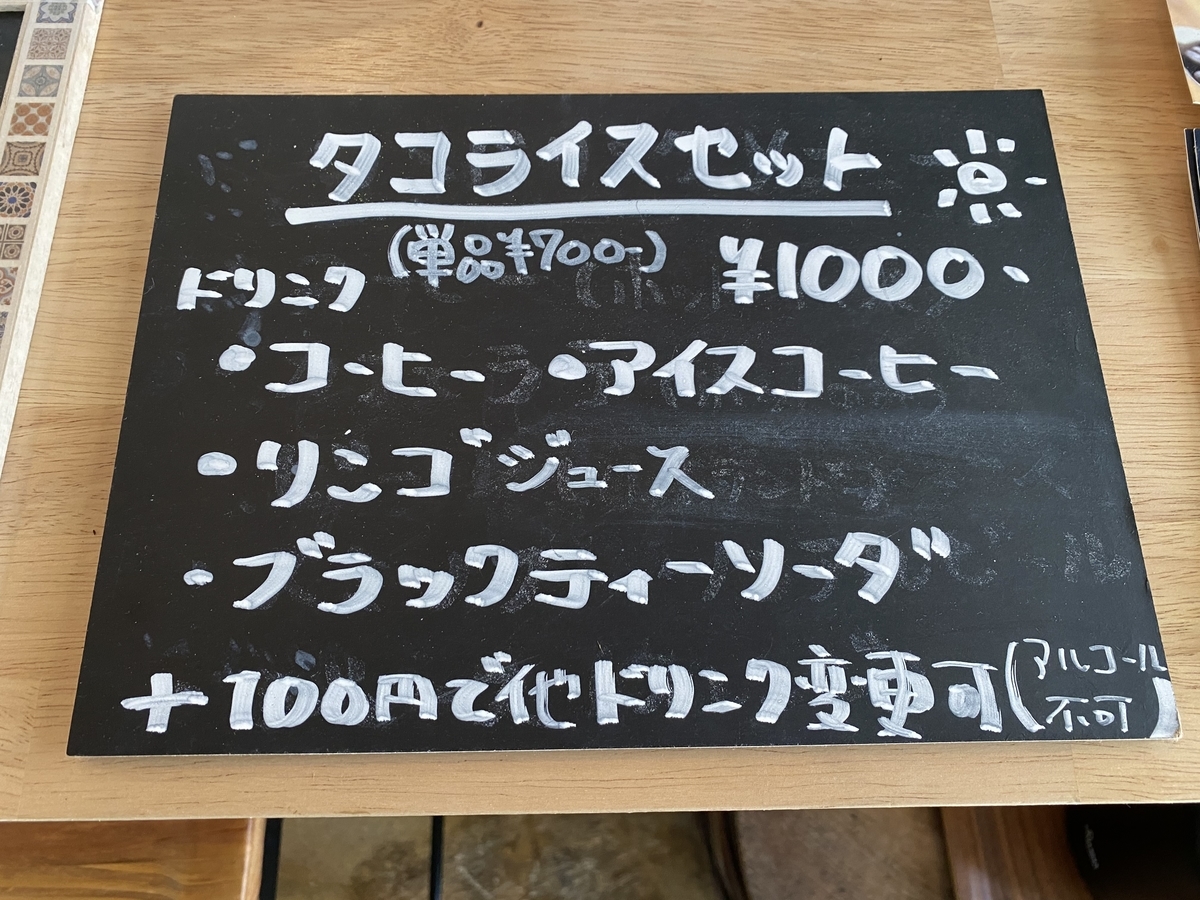 タコライスセット
(単品¥700-) ¥1000-
ドリンク
•コーヒー •アイスコーヒー
•リンゴジュース
•ブラックティーソーダ
+100円で他ドリンク変更可(アルコール不可)